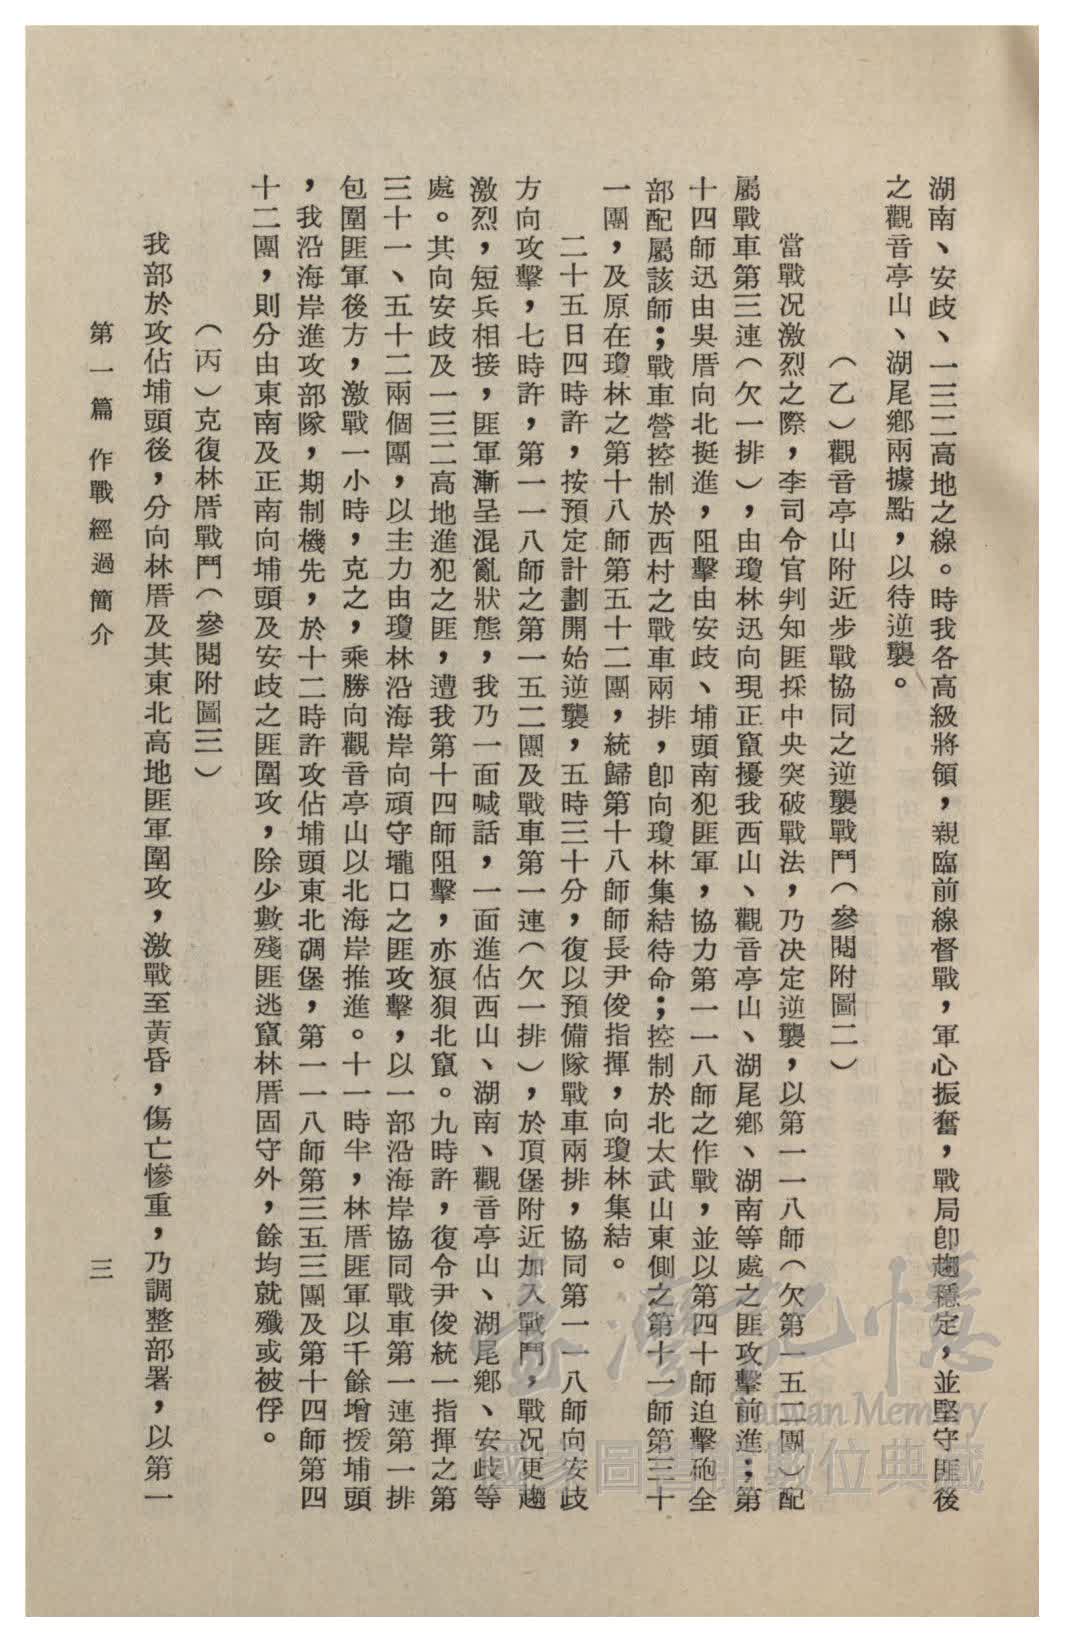 湖南、安歧、一三二高地之線。時我各高級將領，親臨前線督戰，軍心振奮，戰局卽趨穩定，並堅守匪後
之觀音亭山、湖尾鄉兩據點，以待逆襲。
（乙）觀音亭山附近步戰協同之逆襲戰鬥（參閱附圖二）
當戰況激烈之際，李司令官判知匪採中央突破戰法，乃決定逆襲，以第一一八師（欠第一五二團）配
屬戰車第三連（欠一排），由瓊林迅向現正竄擾我西山、觀音亭山、湖尾鄉、湖南等處之匪攻擊前進；第
十四師迅由吳厝向北挺進，阻擊由安歧、埔頭南犯匪軍，協力第一一八師之作戰，並以第四十師迫擊砲全
部配屬該師；戰車營控制於西村之戰車兩排，卽向瓊林集結待命；控制於北太武山東側之第十一師第三十
一團，及原在瓊林之第十八師第五十二團，統歸第十八師師長尹俊指揮，向瓊林集結。
二十五日四時許，按預定計劃開始逆襲，五時三十分，復以預備隊戰車兩排，協同第一一八師向安歧
方向攻擊，七時許，第一一八師之第一五二團及戰車第一連（欠一排），於頂堡附近加入戰鬥，戰況更趨
激烈，短兵相接，匪軍漸呈混亂狀態，我乃一面喊話，一面進佔西山、湖南、觀音亭山、湖尾鄉、安歧等
處。其向安歧及一三二高地進犯之匪，遭我第十四師阻擊，亦狼狽北竄。九時許，復令尹俊統一指揮之第
三十一、五十二兩個團，以主力由瓊林沿海岸向頑守壠口之匪攻擊，以一部沿海岸協同戰車第一連第一排
包圍匪軍後方，激戰一小時，克之，乘勝向觀音亭山以北海岸推進。十一時半，林厝匪軍以千餘增援埔頭
，我沿海岸進攻部隊，期制機先，於十二時許攻佔埔頭東北碉堡，第一一八師第三五三團及第十四師第四
十二團，則分由東南及正南向埔頭及安歧之匪圍攻，除少數殘匪逃竄林厝固守外，餘均就殲或被俘。
（丙）克復林厝戰鬥（參閱附圖三）
我部於攻佔埔頭後，分向林厝及其東北高地匪軍圍攻，激戰至黃昏，傷亡慘重，乃調整部署，以第一
第一篇 作戰經過簡介
三
臺灣記憶
Taiwan Memory
國家圖書館數位典藏